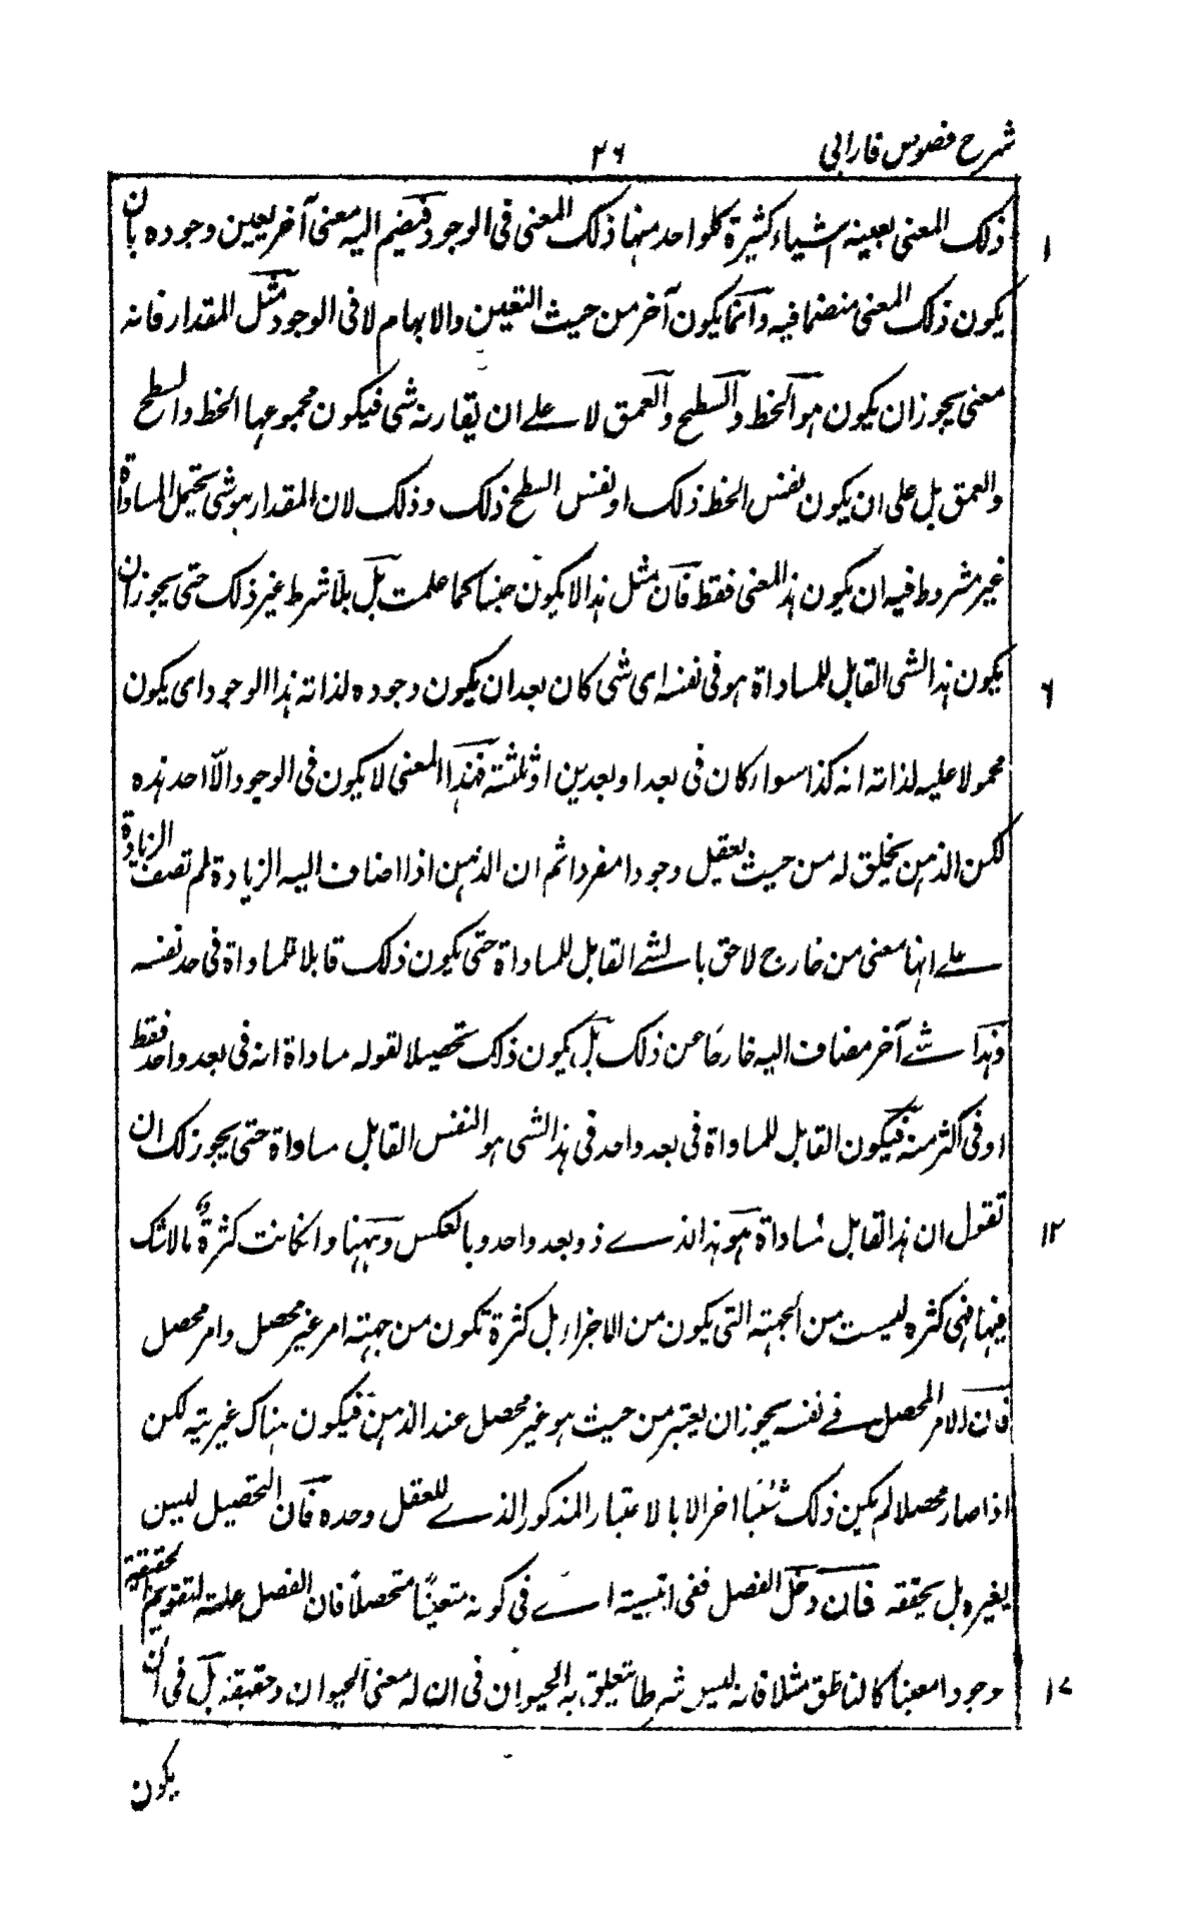 شرح فصوص فارابی
۲۶
ذلک المعنی بعینہ اشیاء کثیرۃ کلواحد منہا ذلک المعنی فی الوجود فیضیم الیہ معنی آخر یعین وجودہ بان
۱
یکون ذلک المعنی منضما فیہ وانما یکون آخر من حیث التعین والابہام لا فی الوجود مثل المقدار فانہ
معنی یجوز ان یکون ہو الخط والسطح والعمق لا علے ان یقارنہ شی فیکون مجموعہا الخط والسطح
والعمق بل علی ان یکون نفس الخط ذلک او نفس السطح ذلک وذلک لان المقدار ہو شی یحتمل المساواۃ
غیر مشروط فیہ ان یکون ہذا المعنی فقط فان مثل ہذا لا یکون جنسا کما علمت بل بلا شرط غیر ذلک حتی یجوز ان
یکون ہذا الشی القابل للمساواۃ ہو فی نفسہ ای شی کان بعد ان یکون وجودہ لذاتہ ہذا الوجود ای یکون
۶
محمولا علیہ لذاتہ انہ کذا سواء کان فی بعد او بعدین او ثلثۃ فہذا المعنی لا یکون فی الوجود الّا احد ہذہ
لکن الذہن یخلق لہ من حیث یعقل وجودا مفردا ثم ان الذہن اذا اضاف الیہ الزیادۃ لم تضف الزیادۃ
علے انہا معنی من خارج لاحق بالشے القابل للمساواۃ حتی یکون ذلک قابلا للمساواۃ فی حد نفسہ
وہذا شے آخر مضاف الیہ خارجا عن ذلک بل یکون ذلک تحصیلا لقولہ مساواۃ انہ فی بعد واحد فقط
او فی اکثر منہ فیکون القابل للمساواۃ فی بعد واحد فی ہذا الشی ہو النفس القابل مساواۃ حتی یجوز لک ان
تقول ان ہذا القابل مساواۃ ہو ہذا الذے ذو بعد واحد وبالعکس وہہنا وانکانت کثرۃ مالاشک
۱۲
فیہا فہی کثرہ لیست من الجہتہ التی یکون من الاجزاء بل کثرۃ تکون من جہتہ امر غیر محصل وامر محصل
فان الامر المحصل فے نفسہ یجوز ان یعتبر من حیث ہو غیر محصل عند الذہن فیکون ہناک غیریتہ لکن
اذا صار محصلا لم یکن ذلک شئیا اخر الا بالاعتبار المذکور الذے للعقل وحدہ فان التحصیل لیس
یغیرہ بل یحققہ فان دخل الفصل ففی انیتہ اے فی کونہ متعینًا متحصلاً فان الفصل علتہ لتقویم الحقیقۃ
وجودا معینا کالناطق مثلا فانہ لیس شرطا یتعلق بہ الحیوان فی ان لہ معنی الحیوان وحقیقتہ بل فی ان
۱۷
یکون